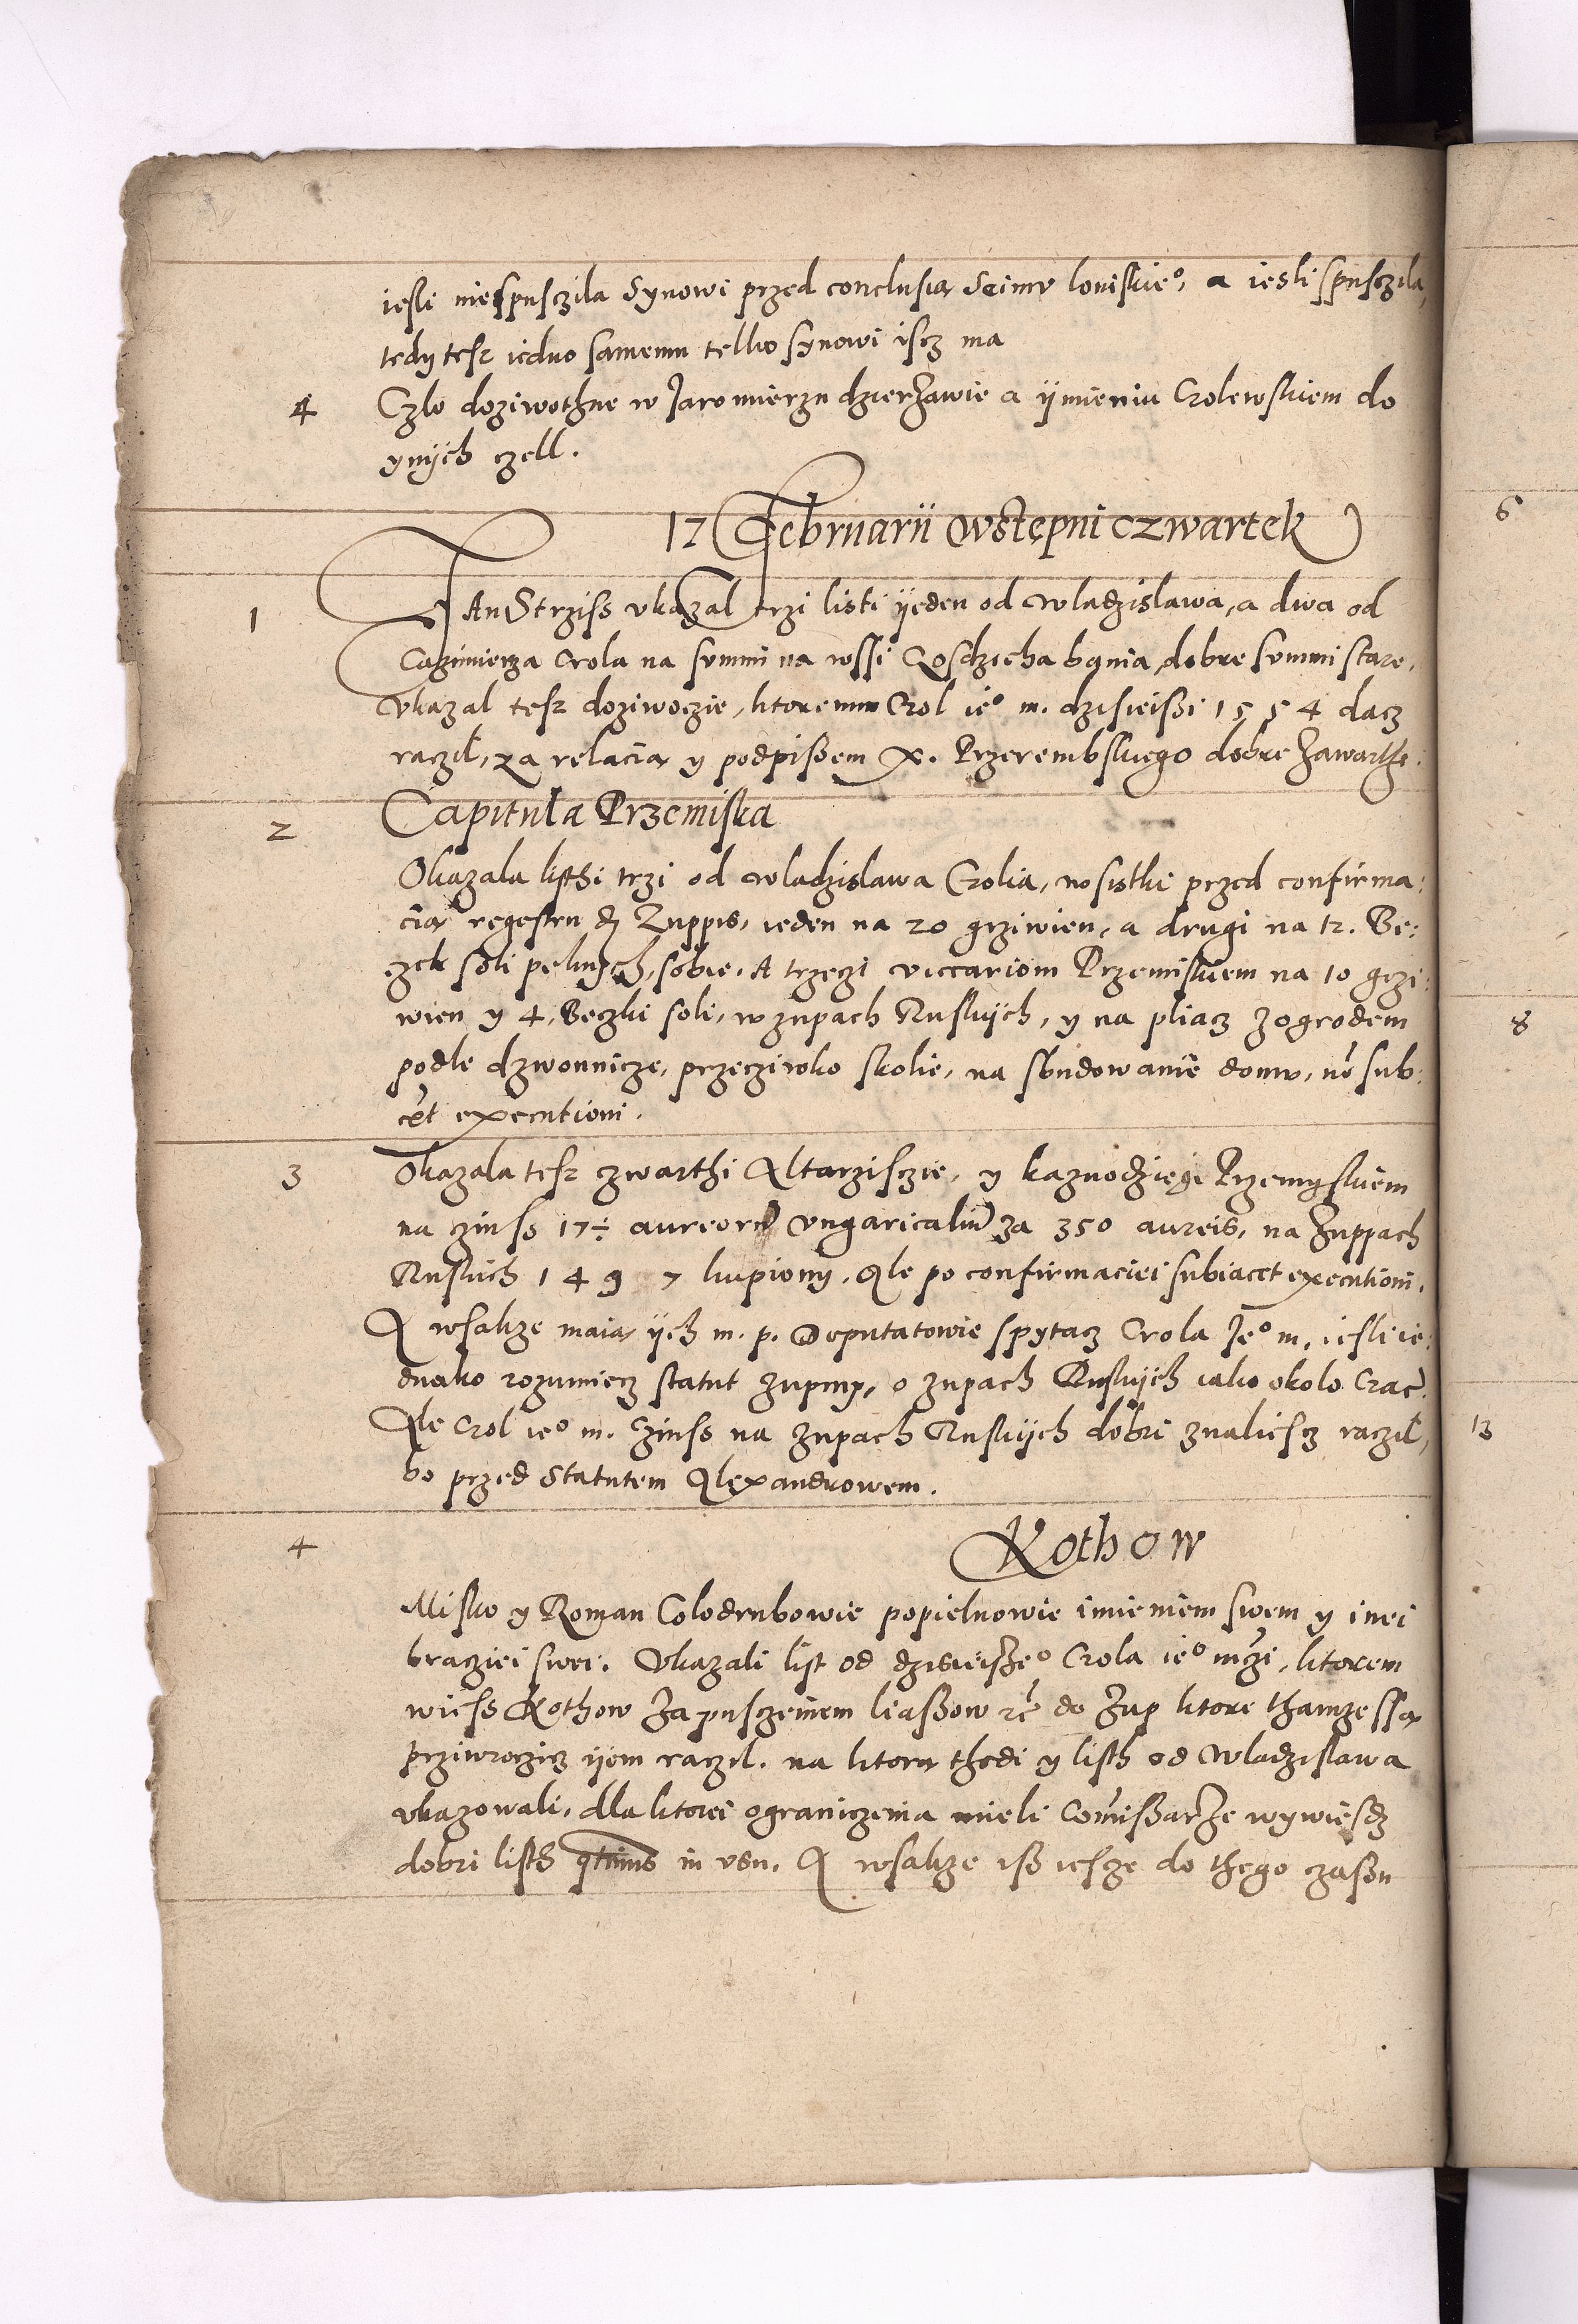 iesli niespusczila Synowi przed conclusią Seimv loviskie°, a iesli spusczila,
tedy tesz iedno samemu telko synowi iscz ma
4 Czlo doziwothne w Jaromierzu dzierzawie a ijmieniu Crolewskiem do
ynijch czell.
17 Februarii wstępni czwartek
6
1 JAn Strziss vkazal trzi listi ijeden od wladzislawa, a dwa od
Cazimierza Crola na svmmi na wssi bania dobre svmmi stare,
Vkazal tesz doziwoczie, ktoremu Crol ie° m. dzisieiszi 1554 dacz
raczil, za relacią y podpiszem x. Przerembskiego dobre zawarthe.
2 Capitula Przemiska
Okazala listhi trzi od wladzislawa Crolia, wsistki przed confirma:
cią regestru de Zuppis, ieden na 20 grziwien, a drugi na 12. Be:
czek soli pelnych, sobie, A trzeczi viccariom Przemiskiem na 10 grzi:
wien y 4, Beczki soli, w zupach Ruskijch, y na pliacz zogrodem
8
podle dzwonnicze, przecziwko skolie, na sbudowanie domv, nō sub:
cēt executioni.
3 Okazala tesz czwarthi Altarzisczie, y kaznodzieie Przemyskiem
na czinss 17÷ aureorū vngaricaliū za 350 aureis, na Zuppach
Ruskich 1497 kupiony, Ale po confirmaciei subiacet executioni.
A wsakze maią ijch m. p. Deputatowie spytacz Crola Je° m, iesli ie:
dnako rozumiecz statut zupny, o zupach Ruskijch iako okolo Crac.
Ale Crol ie° m. Czinss na zupach Ruskijch dobri znaliescz raczil,
13
bo przed Statutem Alexandrowem.
4 Kothow
Misko y Roman Colodrubowie popielnowie imieniem swem y inei
braciei swei. Vkazali list od dzisieisze° Crola ie° mczi, ktorem
wiess Kothow zapusczeniem liaszow rē do zup ktore thamze ssą
prziwroczicz ijem raczil. na ktorą thedi y listh od Wladzislawa
vkazowali, dla ktorei ograniczenia mieli Comiszarze wywiesdz
dobri listh qtinus in vsu. A wsakze isz iescze do thego czaszu